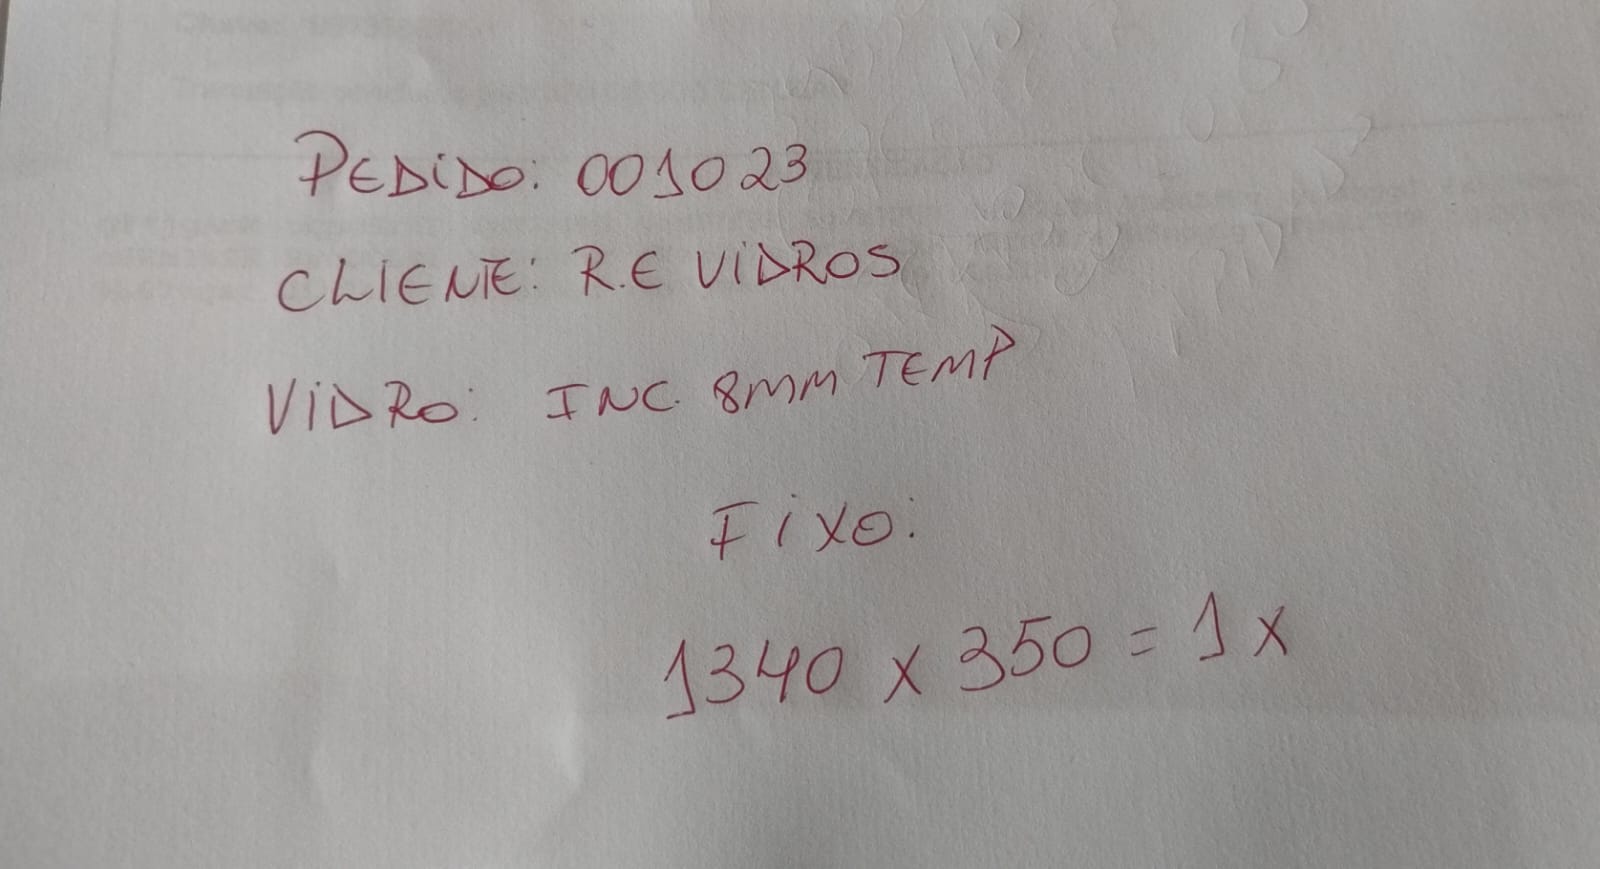 PEDIDO: 001023
CLIENTE: R.E VIDROS
VIDRO: INC. 8MM TEMP
FIXO:
1340 x 350 = 1 x